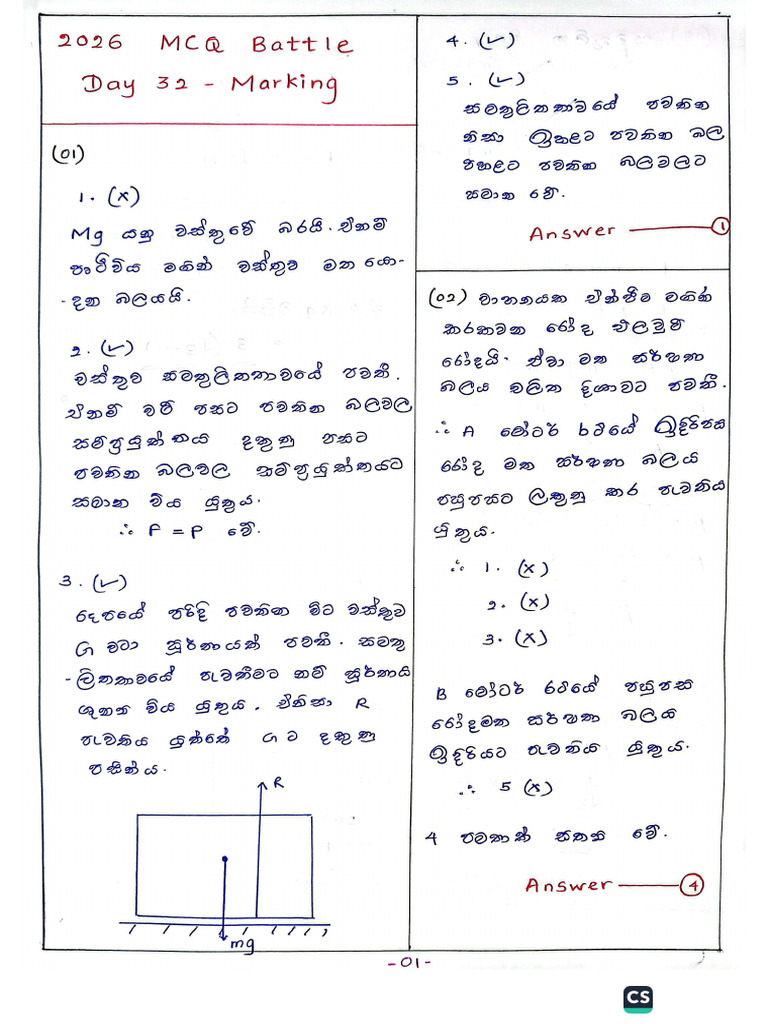 2026 MCQ Battle
Day 32 - Marking
(01)
1. (x)
Mg යනු වස්තුවේ බරයි. ඒනම්
පෘථිවිය මගින් වස්තුව මත යො-
-දන බලයයි.
2. (✓)
වස්තුව සමතුලිතතාවයේ පවතී.
ඒනම් වම් පසට පවතින බලවල
සම්ප්‍රයුක්තය දකුණු පසට
පවතින බලවල සම්ප්‍රයුක්තයට
සමාන විය යුතුය.
∴ F = P වේ.
3. (✓)
දෙපයේ පරිදි පවතින විට වස්තුව
G වටා සූර්ණයක් පවතී. සමතු
-ලිතතාවයේ පැවතීමට නම් සූර්ණය
ශුන්‍ය විය යුතුය. ඒනිසා R
පැවතිය යුත්තේ G ට දකුණු
පසින්ය.
R
mg
4. (✓)
5. (✓)
සමතුලිතතාවයේ පවතින
නිසා ඉහළට පවතින බල
පහළට පවතින බලවලට
සමාන වේ.
Answer 1
(02) වාහනයක එන්ජිම මගින්
කරකවන රෝද එලවුම්
රෝදයි. ඒවා මත ඝර්ෂණ
බලය චලිත දිශාවට පවතී.
∴ A මෝටර් රථයේ ඉදිරිපස
රෝද මත ඝර්ෂණ බලය
පසුපසට ලකුණු කර පැවතිය
යුතුය.
∴ 1. (x)
2. (x)
3. (x)
B මෝටර් රථයේ පසුපස
රෝදමත ඝර්ෂණ බලය
ඉදිරියට පැවතිය යුතුය.
∴ 5 (x)
4 පමණක් සත්‍ය වේ.
Answer 4
-01-
CS